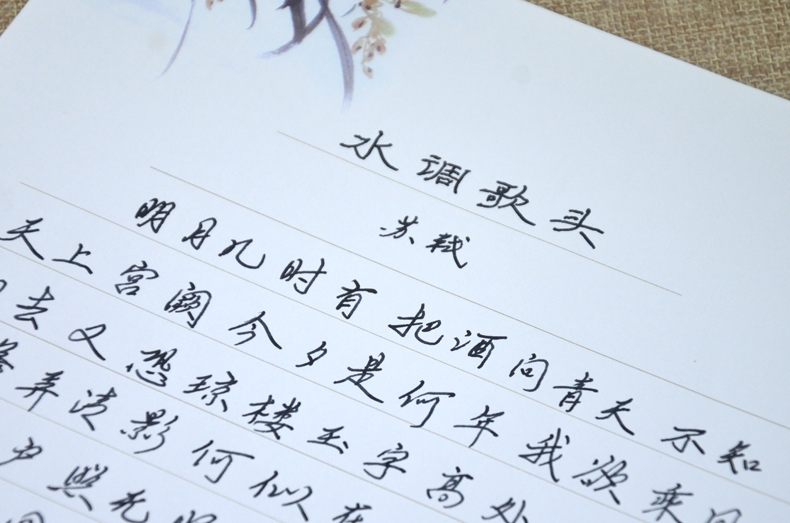 水调歌头
苏轼
明月几时有把酒问青天不知
天上宫阙今夕是何年我欲乘
去又恐琼楼玉宇高处
弄清影何似在
户照无